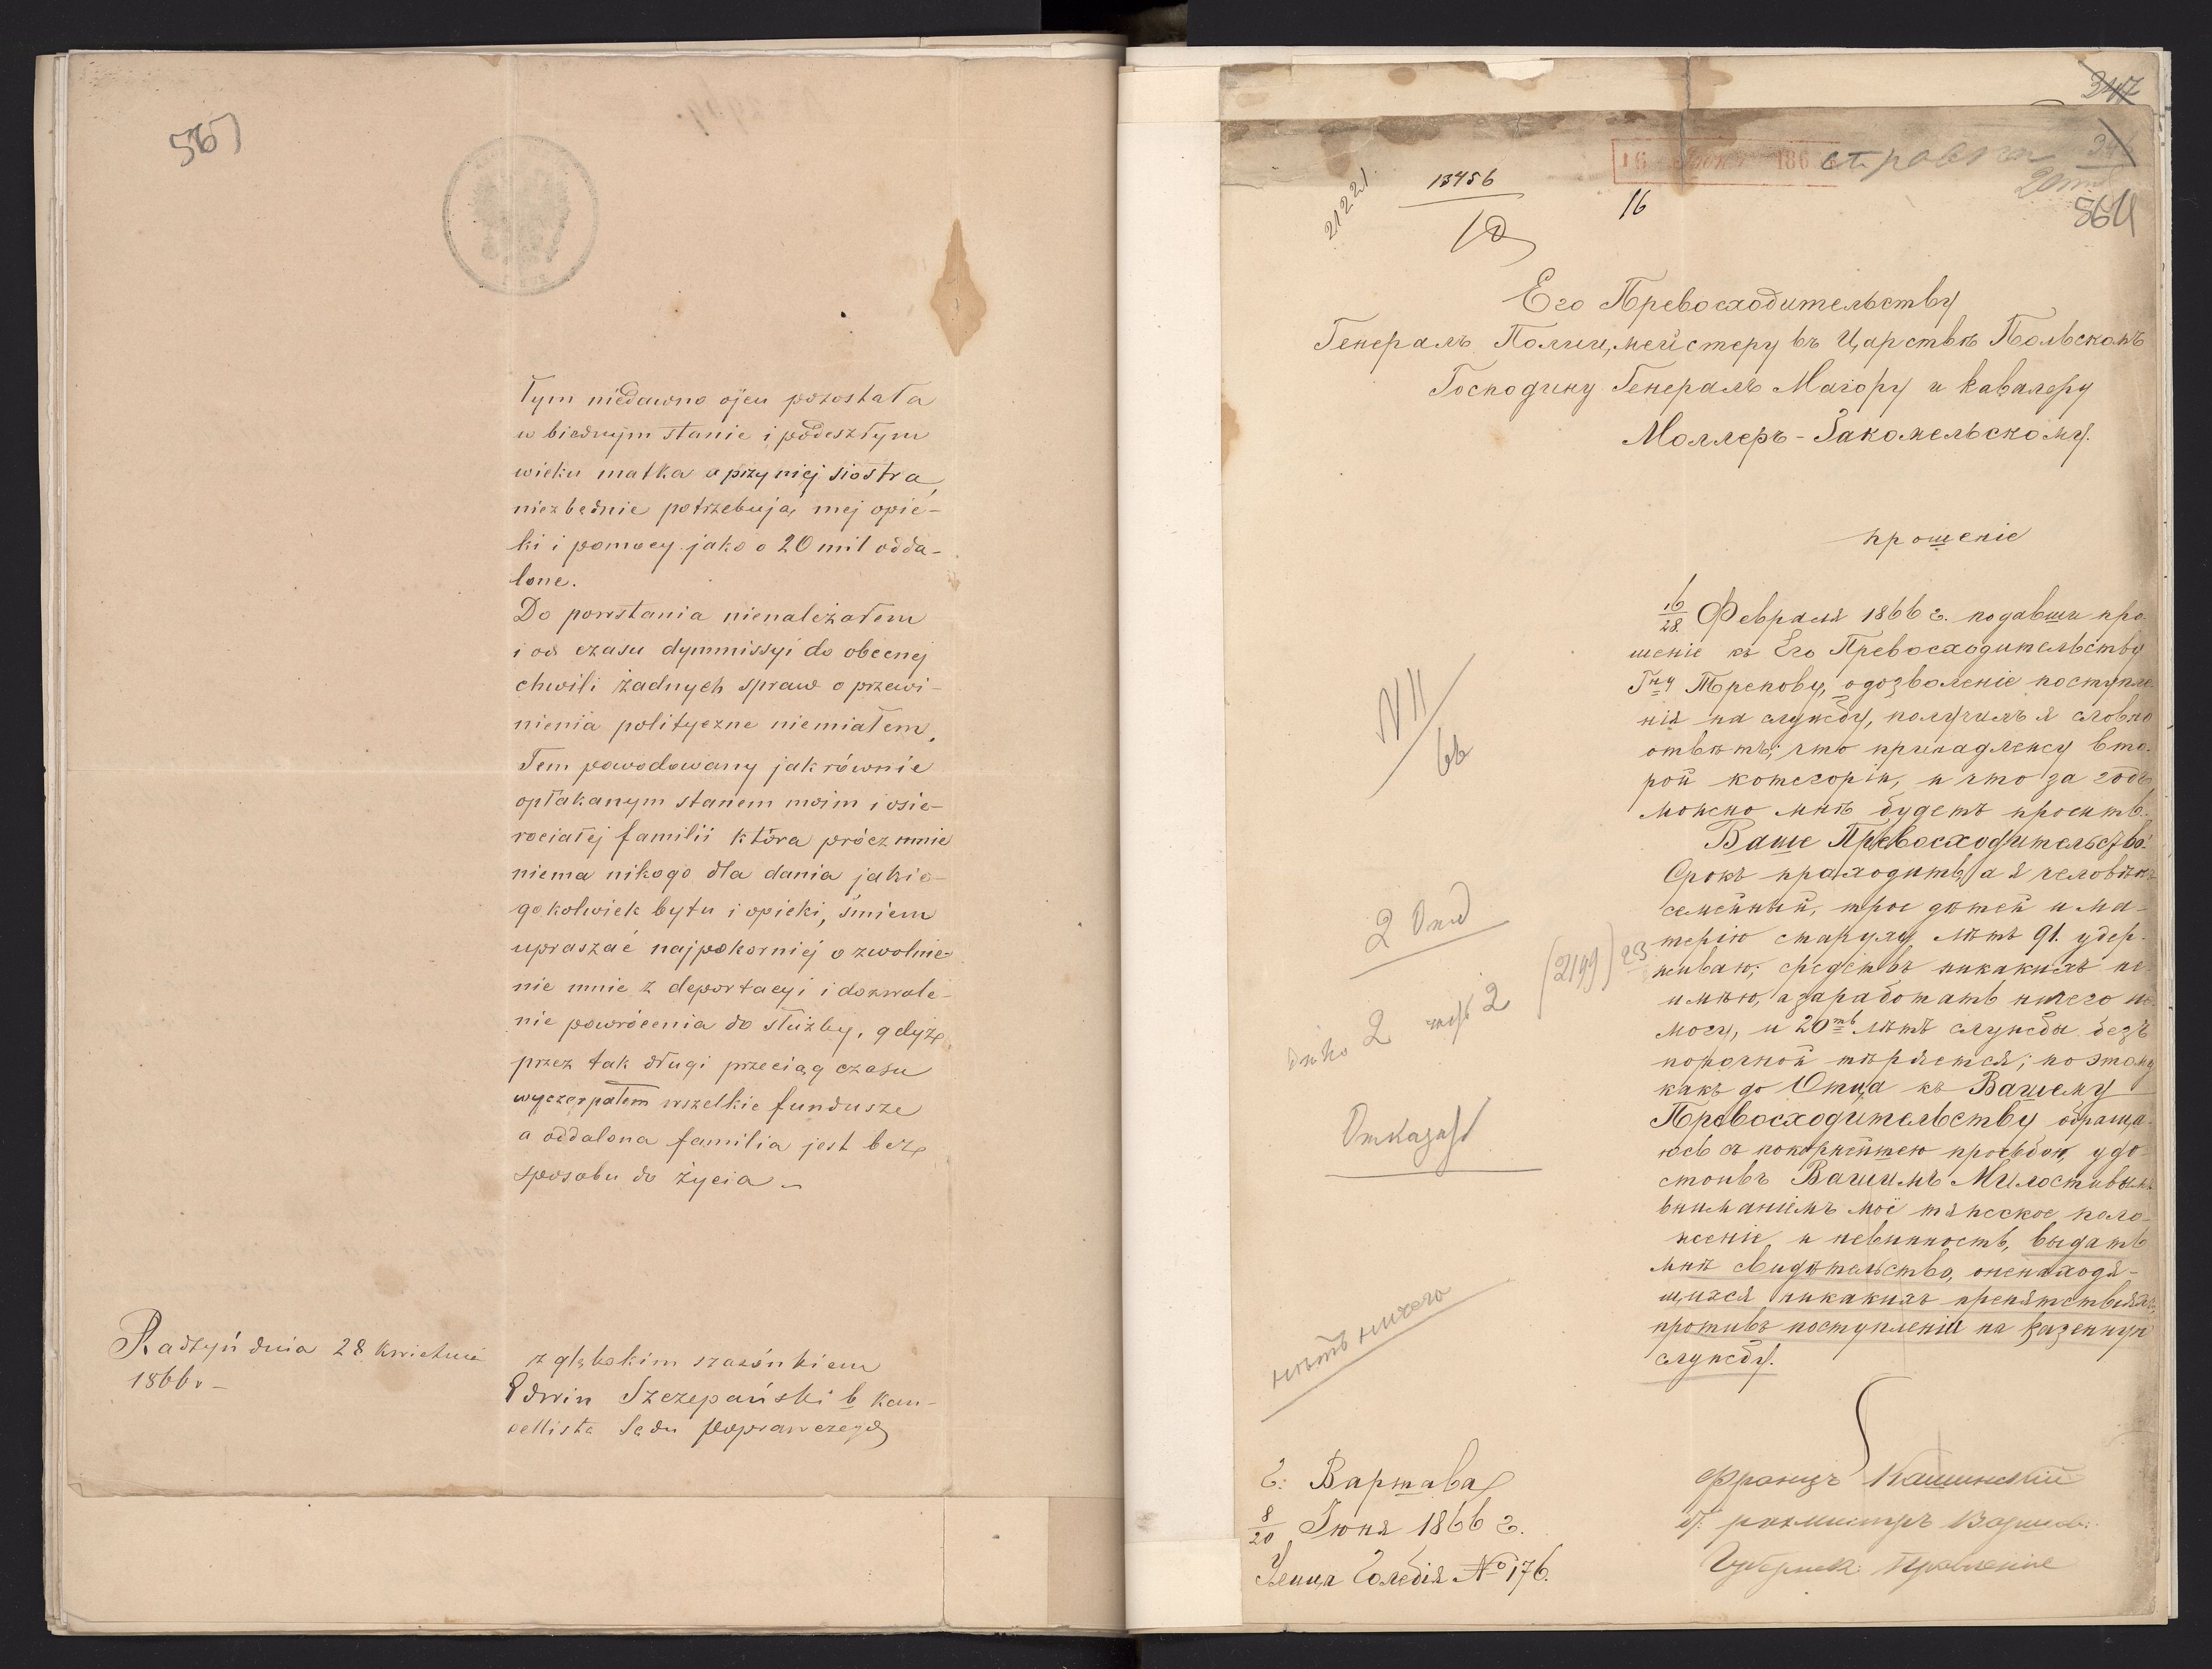 567
Tym niedawno ojcu pozostała
w biednym stanie i podeszłym
wieku matka a przy niej siostra,
niezbędnie potrzebują mej opie-
ki i pomocy jako o 20 mil odda-
lone.
Do powstania nienależałem
i od czasu dymmissyi do obecnej
chwili żadnych spraw o przewi-
nienia polityczne niemiałem,
Tem powodowany jak równie
opłakanym stanem moim i osie-
rociałej familii która prócz mnie
niema nikogo dla dania jakie-
gokolwiek bytu i opieki, śmiem
upraszać najpokorniej o zwolnie-
nie mnie z deportacyi i dozwole-
nie powrócenia do służby, gdyż
przez tak długi przeciąg czasu
wyczerpałem wszelkie fundusze
a oddalona familia jest bez
sposobu do życia –
Radzyń dnia 28 kwietnia
1866 r –
z głębokim szacunkiem
Edwin Szczepański b kan-
cellista Sądu Poprawczego
347
16 186
справка
564
21221
13456
16
Его Превосходительству
Генералъ Полицмейстеру въ Царствѣ Польскомъ
Господину Генералъ Маіору и Кавалеру
Моллеръ-Закомельскому.
прошеніе
16/28 Февраля 1866 г. подавши про-
шеніе къ Его Превосходительству
Гну Трепову, о дозволеніе поступле-
нія на службу, получилъ я словно
отвѣтъ; что принадлежу вто-
рой котегоріи, и что за годъ
можно мнѣ будетъ просить.
Ваше Превосходительство!
Срокъ проходитъ, а я человѣкъ
семейный, трое дѣтей и ма-
терію старуху лѣтъ 91. удер-
живаю; средствъ никакихъ не
имѣю, а заработать ничего не
могу, и 20ть лѣтъ службы безъ
порочной тѣряется; поэтому
какъ до Отца къ Вашему
Превосходительству обраща-
юсь съ покорнѣйшею просьбою, удо-
стоивъ Вашимъ Милостивымъ
вниманіемъ моё тяжское поло-
женіе и невинность, выдать
мнѣ свидѣтельство, о ненаходя-
щихся никакихъ препятствіяхъ,
противъ поступленія на казенную
службу.
N 11/66
2 Отд
2 2 (2199)
Отказать
нѣтъ ничего
Г: Варшава
8/20 Іюня 1866 г.
Улица Голебія № 176.
Францъ Кашинскій
Б: Варшав:
Губернск: Правленіе